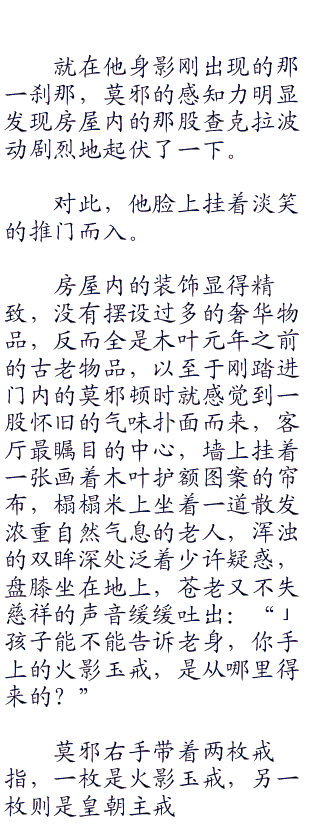 就在他身影刚出现的那
一刹那，莫邪的感知力明显
发现房屋内的那股查克拉波
动剧烈地起伏了一下。
对此，他脸上挂着淡笑
的推门而入。
房屋内的装饰显得精
致，没有摆设过多的奢华物
品，反而全是木叶元年之前
的古老物品，以至于刚踏进
门内的莫邪顿时就感觉到一
股怀旧的气味扑面而来，客
厅最瞩目的中心，墙上挂着
一张画着木叶护额图案的帘
布，榻榻米上坐着一道散发
浓重自然气息的老人，浑浊
的双眸深处泛着少许疑惑，
盘膝坐在地上，苍老又不失
慈祥的声音缓缓吐出：“」
孩子能不能告诉老身，你手
上的火影玉戒，是从哪里得
来的？”
莫邪右手带着两枚戒
指，一枚是火影玉戒，另一
枚则是皇朝主戒